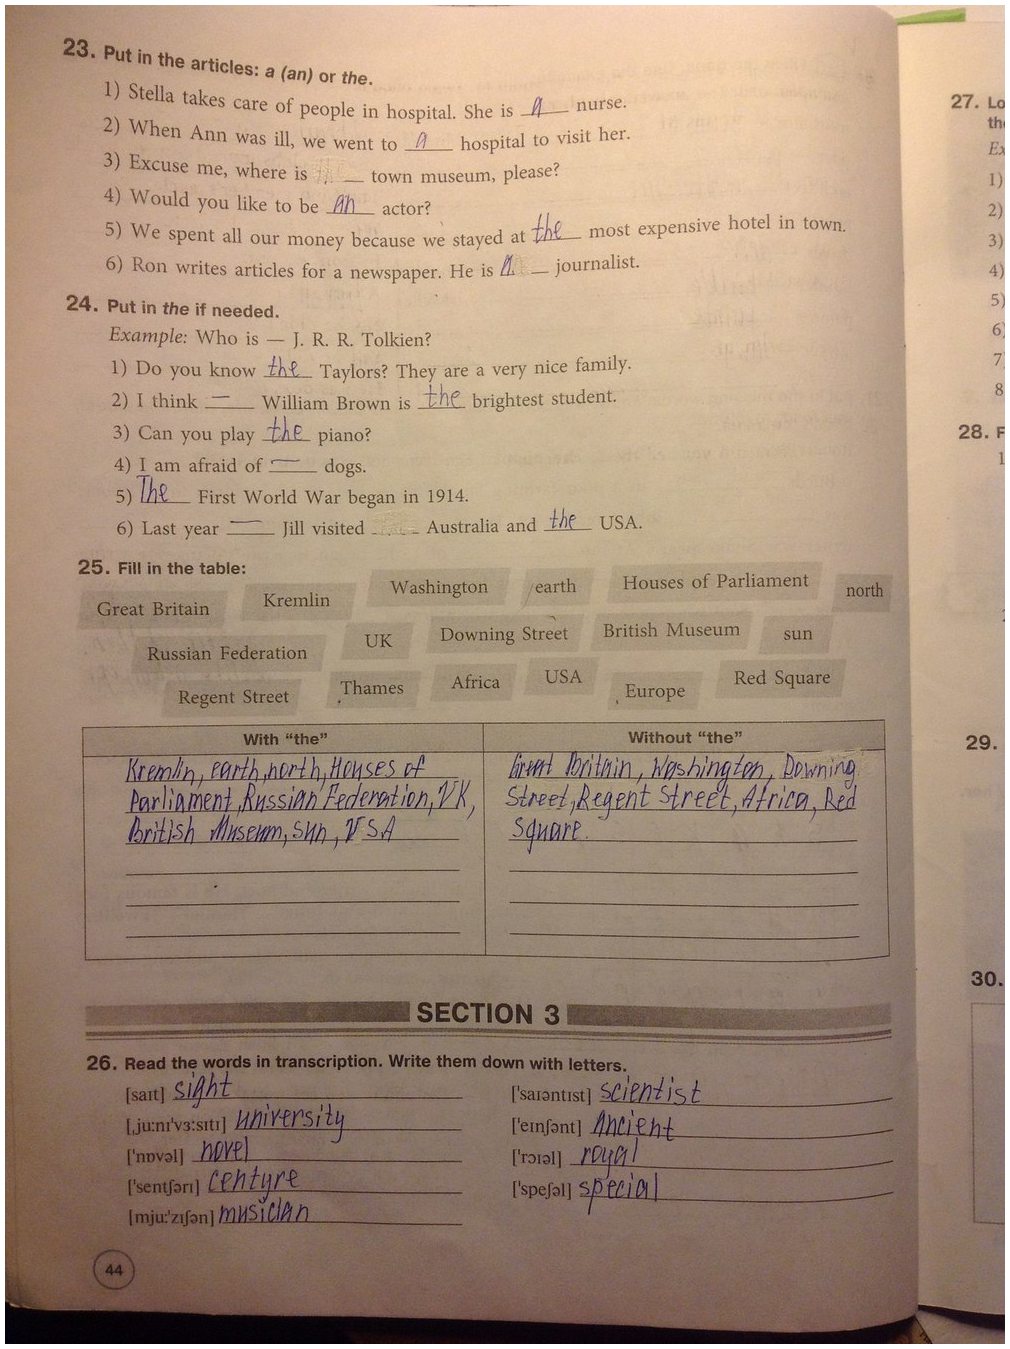 23. Put in the articles: a (an) or the.
1) Stella takes care of people in hospital. She is a nurse.
2) When Ann was ill, we went to a hospital to visit her.
3) Excuse me, where is ___ town museum, please?
4) Would you like to be an actor?
5) We spent all our money because we stayed at the most expensive hotel in town.
6) Ron writes articles for a newspaper. He is a journalist.
24. Put in the if needed.
Example: Who is — J. R. R. Tolkien?
1) Do you know the Taylors? They are a very nice family.
2) I think — William Brown is the brightest student.
3) Can you play the piano?
4) I am afraid of — dogs.
5) The First World War began in 1914.
6) Last year — Jill visited ___ Australia and the USA.
25. Fill in the table:
Great Britain Kremlin Washington earth Houses of Parliament north
Russian Federation UK Downing Street British Museum sun
Regent Street Thames Africa USA Europe Red Square
With “the” Without “the”
Kremlin, earth, north, Houses of
Parliament, Russian Federation, UK,
British Museum, sun, USA
Great Britain, Washington, Downing
Street, Regent Street, Africa, Red
Square.
SECTION 3
26. Read the words in transcription. Write them down with letters.
[saɪt] sight
[ˌjuːnɪˈvɜːsɪtɪ] university
[ˈnɒvəl] novel
[ˈsentʃərɪ] centyre
[mjuːˈzɪʃən] musician
[ˈsaɪəntɪst] scientist
[ˈeɪnʃənt] Ancient
[ˈrɔɪəl] royal
[ˈspeʃəl] special
44
27. Lo
th
Ex
1)
2)
3)
4)
5)
6)
7)
8
28. F
1
29.
30.